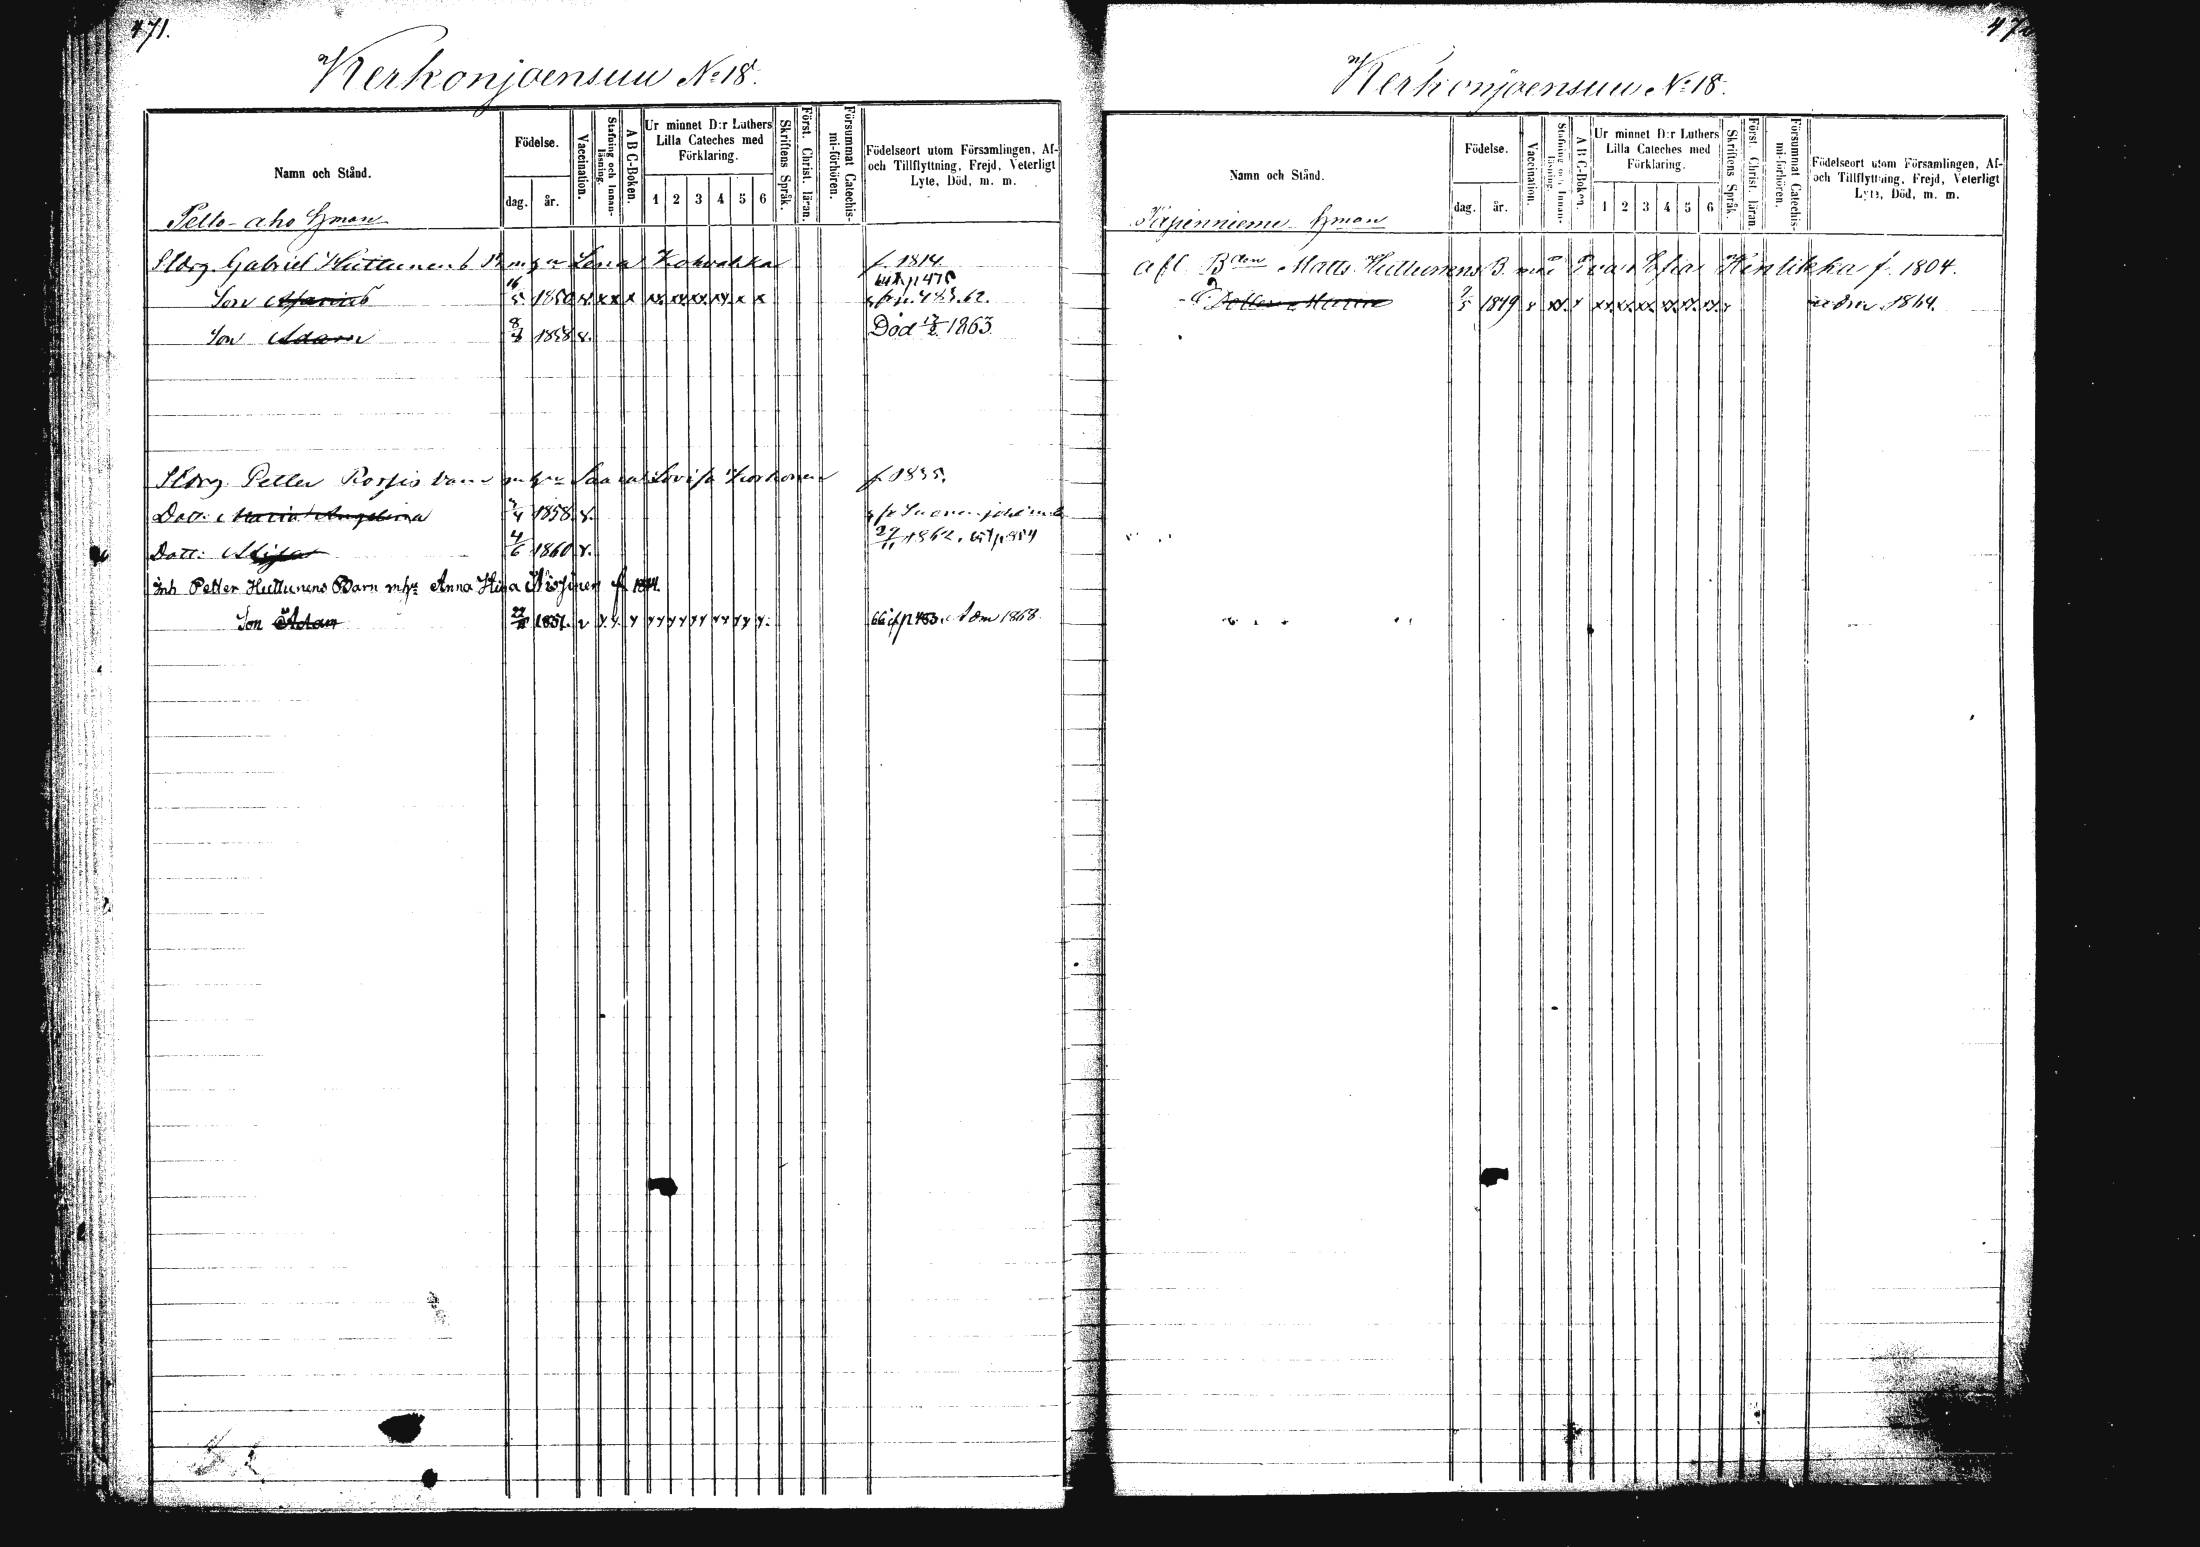 471.
Kerkonjoensuu No 18.
Namn och Stånd.
Födelse.
dag.
år.
Vaccination.
Stafning och Innan-
läsning.
A B C-Boken.
Ur minnet D:r Luthers
Lilla Cateches med
Förklaring.
1 2 3 4 5 6
Skriftens Språk.
Först. Christ. läran.
Försummat Catechis-
mi-förhören.
Födelseort utom Församlingen, Af-
och Tillflyttning, Frejd, Veterligt
Lyte, Död, m. m.
Pello-aho Hman
Gabriel Huttunens Lena f. 1814.
Son 16/5 1850 v. xx x xx xx xx xx x x 483. 62.
Son Adam 8/8 1858 v. Död 1863
Petter Lovisa Korhonen f. 1835.
Dott: Maria Angelina 1858 v.
Dott: 4/6 1860 v. 29/11 1862.
Inh Petter Huttunens Barn Anna f. 1824.
Son Adam 1851. v Adm 1868.
472
Kerkonjoensuu No 18.
Namn och Stånd.
Födelse.
dag.
år.
Vaccination.
Stafning och Innan-
läsning.
A B C-Boken.
Ur minnet D:r Luthers
Lilla Cateches med
Förklaring.
1 2 3 4 5 6
Skriftens Språk.
Först. Christ. läran.
Försummat Catechis-
mi-förhören.
Födelseort utom Församlingen, Af-
och Tillflyttning, Frejd, Veterligt
Lyte, Död, m. m.
Hman
afl. Bden Matts Huttunens B. Eva Sofia Hintikka f. 1804.
1849 adm 1864.